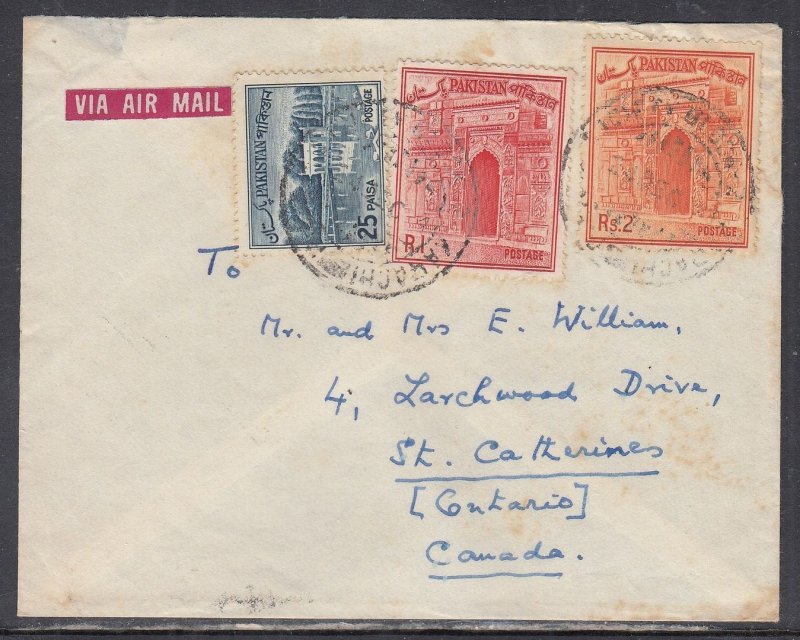 VIA AIR MAIL
پاکستان PAKISTAN পাকিস্তান
25 PAISA
POSTAGE
پاکستان PAKISTAN পাকিস্তান
Re.1
POSTAGE
پاکستان PAKISTAN পাকিস্তান
Rs.2
POSTAGE
KARACHI
To
Mr. and Mrs E. William,
4, Larchwood Drive,
St. Catherines
[Ontario]
Canada.